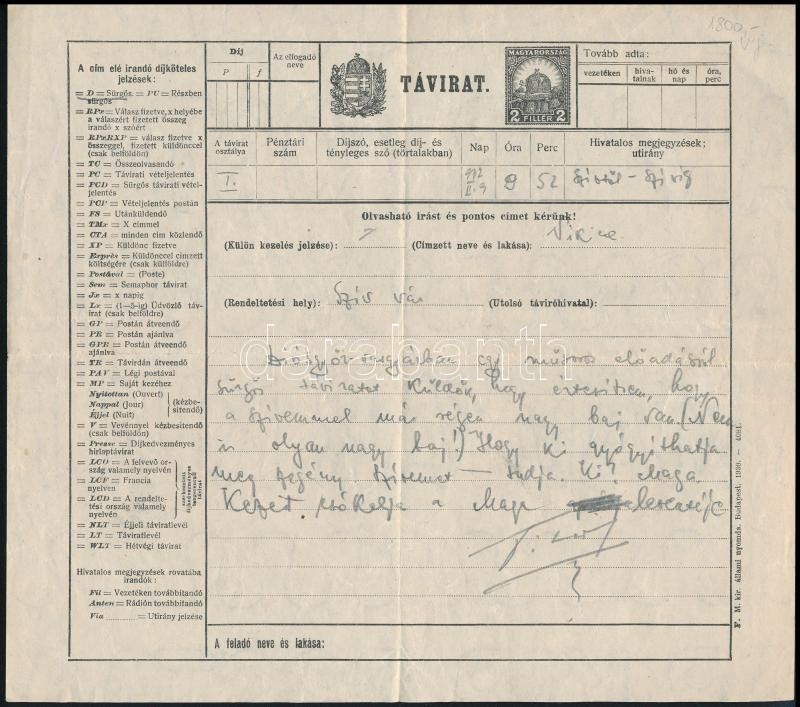 1800,-
A cím elé irandó díjköteles
jelzések:
= D = Sürgős. = PU = Részben
sürgős
= RPx = Válasz fizetve, x helyébe
a válaszért fizetett összeg
irandó x szóért
= RPxRXP = válasz fizetve x
összeggel, fizetett küldönccel
(csak belföldön)
= TC = Összeolvasandó
= PC = Távirati vételjelentés
= PCD = Sürgős távirati vétel-
jelentés
= PCP = Vételjelentés postán
= FS = Utánküldendő
= TMx = X címmel
= CTA = minden cim közlendő
= XP = Küldönc fizetve
= Exprès = Küldönccel címzett
költségére (csak külföldre)
= Postával = (Poste)
= Sem = Semaphor távirat
= Jx = x napig
= Lx = (1—5-ig) Üdvözlő táv-
irat (csak belföldre)
= GP = Postán átveendő
= PR = Postán ajánlva
= GPR = Postán átveendő
ajánlva
= TR = Távirdán átveendő
= PAV = Légi postával
= MP = Saját kezéhez
Nyitottan (Ouvert)
Nappal (Jour)
Éjjel (Nuit)
(kézbe-
sitendő)
= V = Vevénnyel kézbesitendő
(csak belföldön)
= Presse = Díjkedvezményes
hírlaptávirat
= LCO = A felvevő or-
szág valamely nyelvén
= LCF = Francia
nyelven
= LCD = A rendelte-
tési ország valamely
nyelvén
= NLT = Éjjeli táviratlevél
= LT = Táviratlevél
= WLT = Hétvégi távirat
Hivatalos megjegyzések rovatába
irandók:
Fil = Vezetéken továbbítandó
Anten = Rádión továbbítandó
Via = Utirány jelzése
Díj
P f
Az elfogadó
neve
TÁVIRAT.
MAGYARORSZÁG
2 FILLÉR 2
Tovább adta:
vezetéken
hiva-
talnak
hó és
nap
óra,
perc
A távirat
osztálya
Pénztári
szám
Díjszó, esetleg díj- és
tényleges szó (törtalakban)
Nap Óra Perc
Hivatalos megjegyzések;
utirány
I. 932 II. 9 9 52 Szívtől – Szívig
Olvasható irást és pontos címet kérünk!
(Külön kezelés jelzése): (Címzett neve és lakása):
(Rendeltetési hely): Szív vár (Utolsó távíróhivatal):
Diósgyőr-vasgyárban egy műsoros előadásról
sürgős táviratot küldök, hogy értesítsem, hogy
a szívemmel már régen nagy baj van. (Nem
is olyan nagy baj!) Hogy ki gyógyíthatja
meg szegény szívemet — tudja. Ki? Maga.
Kezét csókolja a Maga
A feladó neve és lakása:
F. M. kir. állami nyomda. Budapest, 1930. — 4091.
darabanth